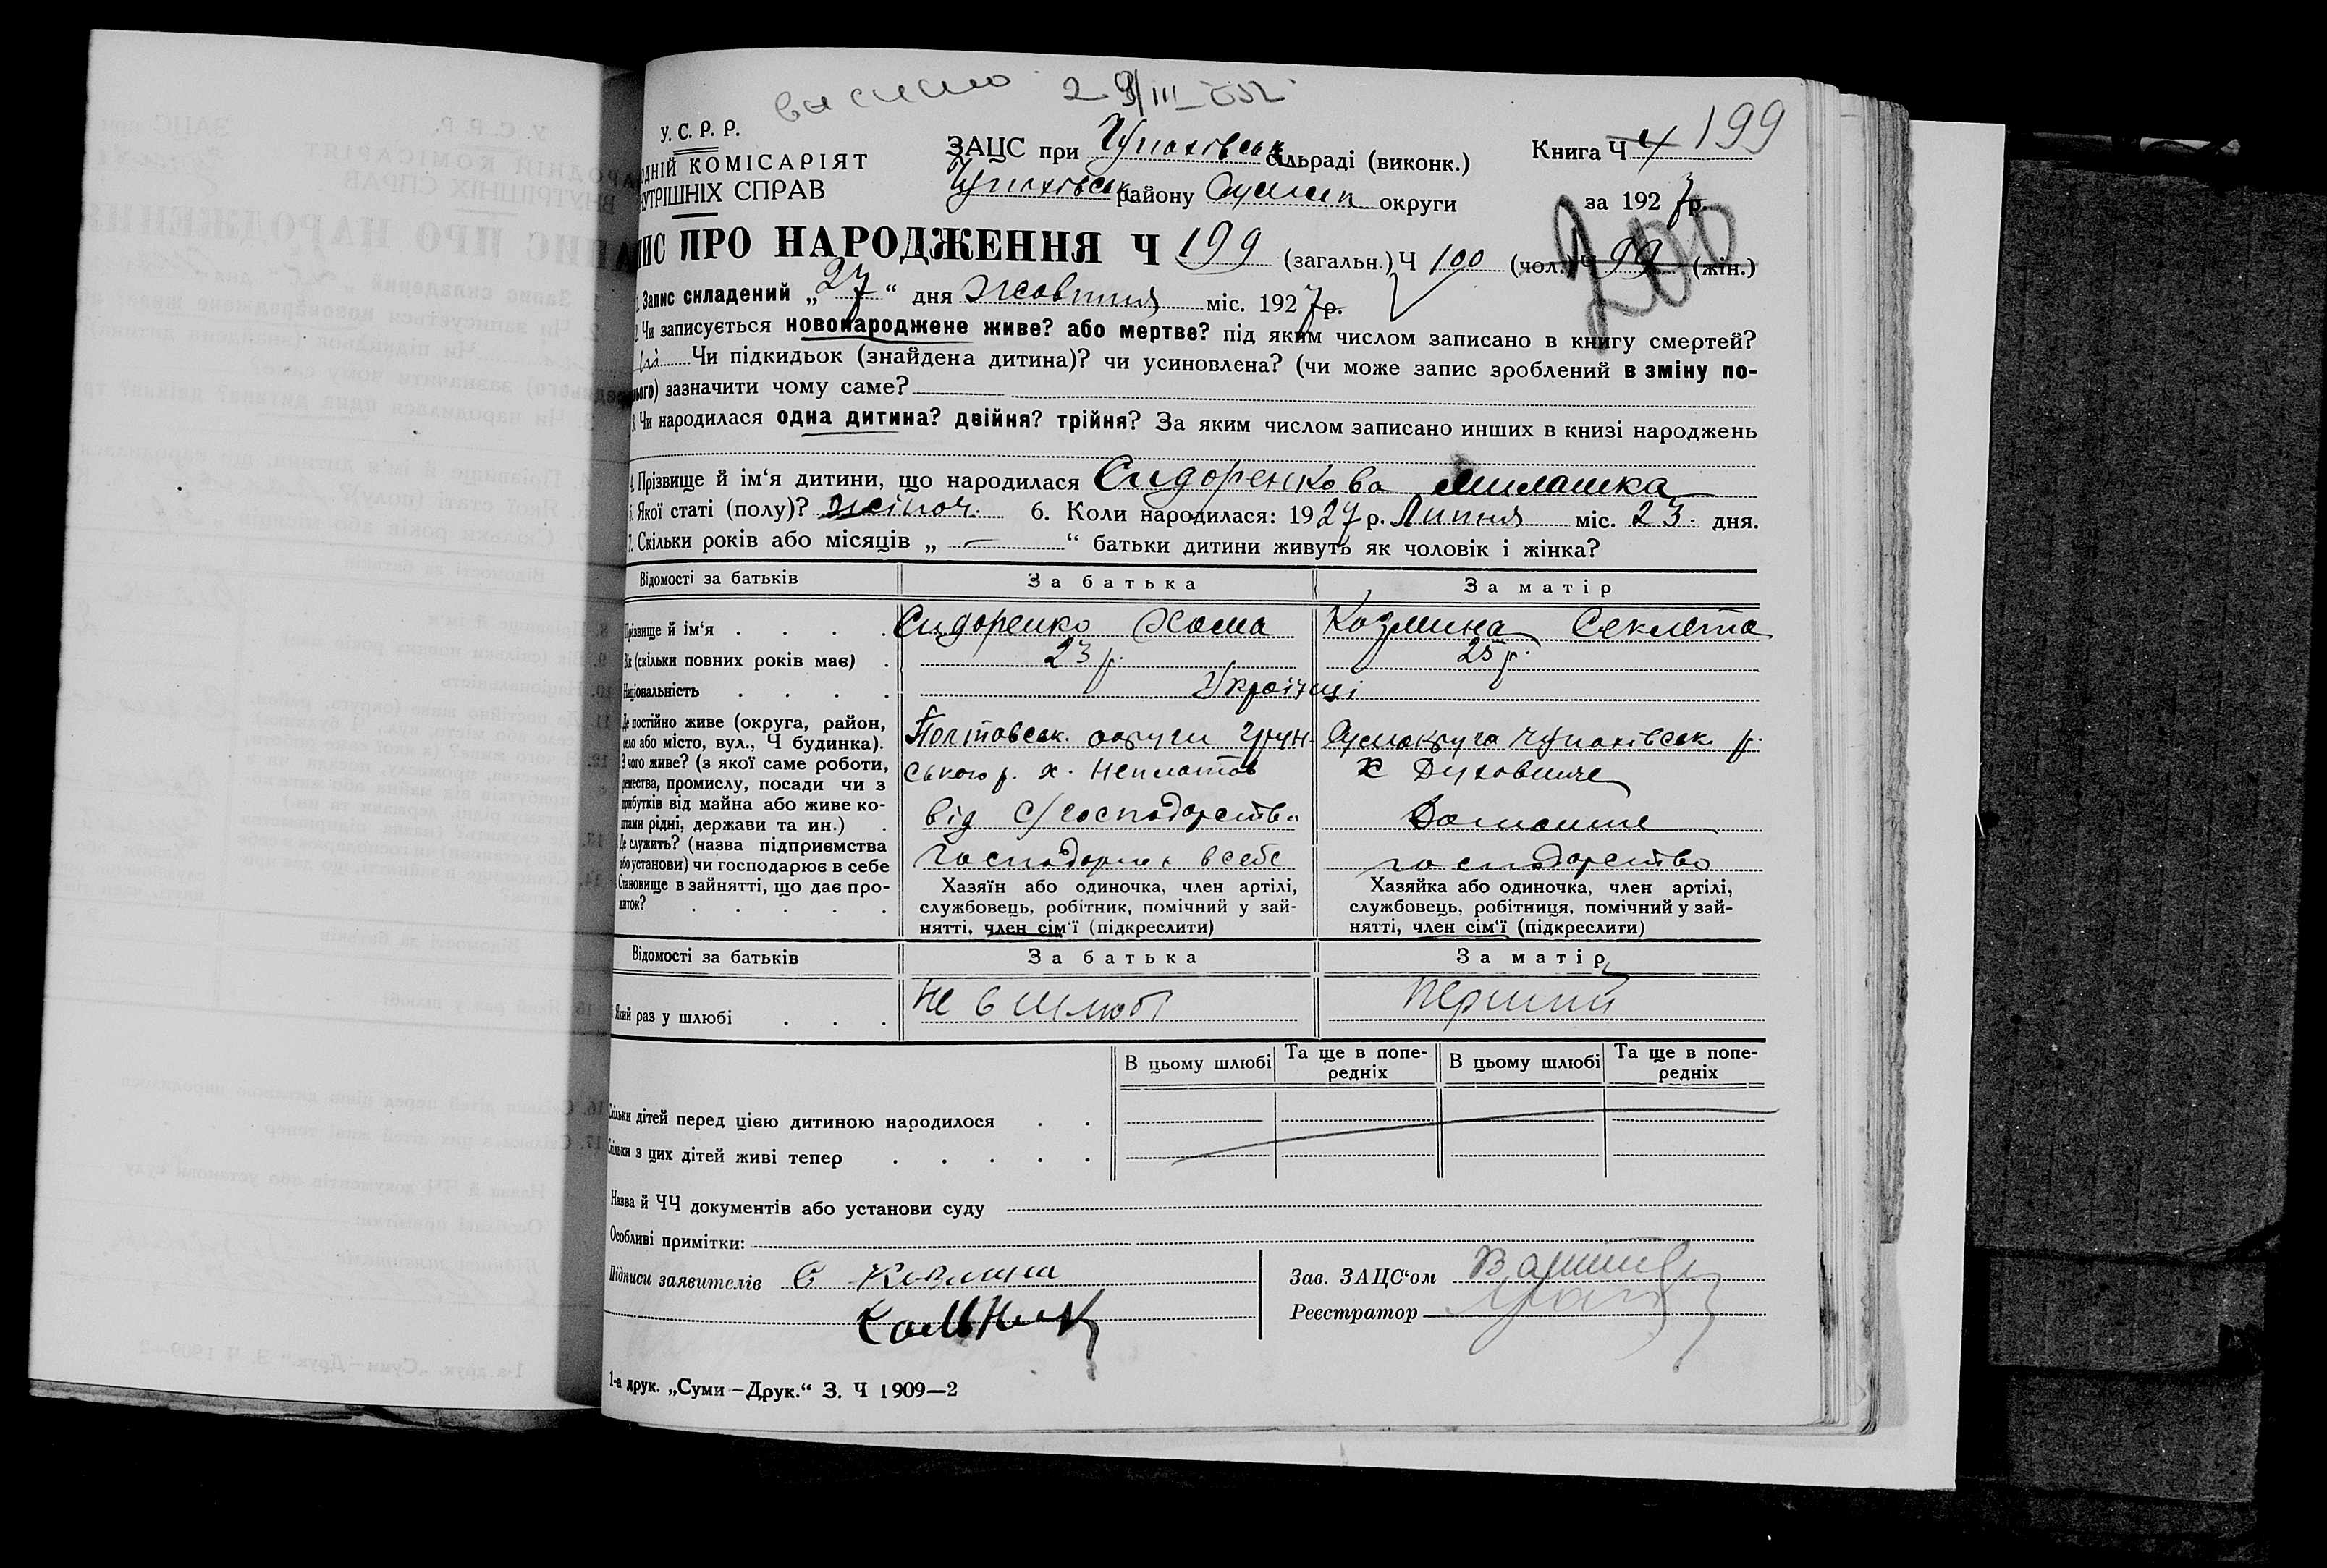 29/III
199
У. С. Р. Р.
ОДНІЙ КОМІСАРІЯТ
НУТРІШНІХ СПРАВ
ЗАЦС при Чупахівськ сільраді (виконк.)
Чупахівськ району Сумськ округи
Книга Ч 4
за 1927р.
ПИС ПРО НАРОДЖЕННЯ Ч 199 (загальн.) Ч 100 (чол.) Ч 99 (жін.)
200
1. Запис складений „27“ дня Жовтня міс. 1927р.
2. Чи записується новонароджене живе? або мертве? під яким числом записано в книгу смертей?
Чи підкидьок (знайдена дитина)? чи усиновлена? (чи може запис зроблений в зміну по-
нього) зазначити чому саме?
3. Чи народилася одна дитина? двійня? трійня? За яким числом записано инших в книзі народжень
4. Прізвище й ім‘я дитини, що народилася Сидоренкова Милашка
5. Якої статі (полу)? жіноч. 6. Коли народилася: 1927р. Липня міс. 23. дня.
7. Скільки років або місяців „ — “ батьки дитини живуть як чоловік і жінка?
Відомості за батьків За батька За матір
Прізвище й ім‘я Сидоренко Хома Козмина Секлета
Вік (скільки повних років має) 23 р. 25 р.
Національність Українці
Де постійно живе (округа, район,
село або місто, вул., Ч будинка).
З чого живе? (з якої саме роботи,
ремества, промислу, посади чи з
прибутків від майна або живе ко-
штами рідні, держави та ин.)
Де служить? (назва підприємства
або установи) чи господарює в себе
Становище в зайнятті, що дає про-
житок?
Полтовськ. округи Грун-
ського р. х.
від с/господорства
господорює в себе
Хазяїн або одиночка, член артілі,
службовець, робітник, помічний у зай-
нятті, член сім‘ї (підкреслити)
Сумокруга Чупахівськ р.
х
Домашнє
господорство
Хазяйка або одиночка, член артілі,
службовець, робітниця, помічний у зай-
нятті, член сім‘ї (підкреслити)
Відомості за батьків За батька За матір
Який раз у шлюбі Не в шлюбі перший
В цьому шлюбі Та ще в попе-редніх В цьому шлюбі Та ще в попе-редніх
Скільки дітей перед цією дитиною народилося
Скільки з цих дітей живі тепер
Назва й ЧЧ документів або установи суду
Особливі примітки:
Підписи заявителів С Козмина
Зав. ЗАЦС‘ом
Реєстратор
1-а друк. „Суми—Друк.“ З. Ч 1909—2